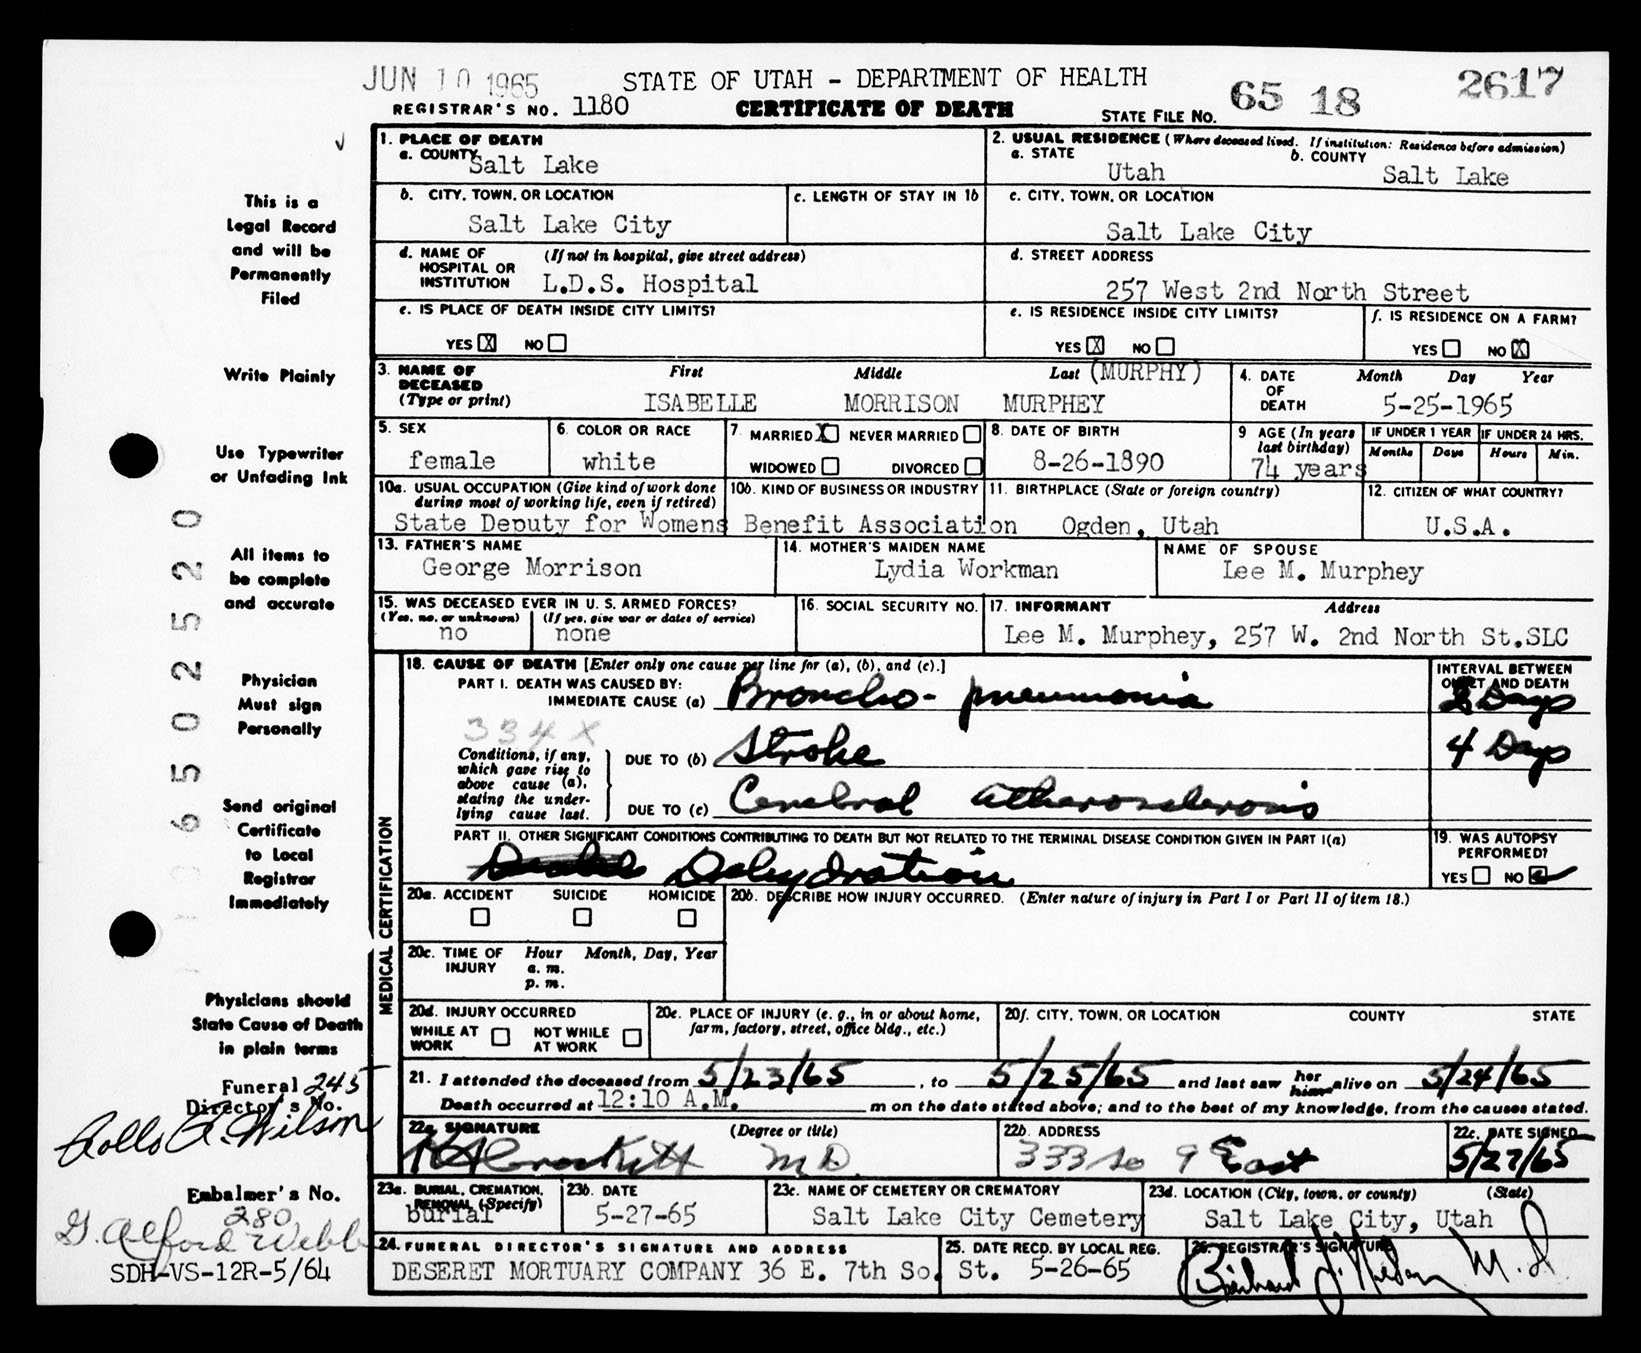 JUN 10 1965 STATE OF UTAH - DEPARTMENT OF HEALTH 65 18 2617
REGISTRAR'S NO. 1180 CERTIFICATE OF DEATH STATE FILE NO.
1. PLACE OF DEATH
a. COUNTY Salt Lake
2. USUAL RESIDENCE (Where deceased lived. If institution: Residence before admission)
a. STATE Utah b. COUNTY Salt Lake
b. CITY, TOWN, OR LOCATION Salt Lake City
c. LENGTH OF STAY IN 1b
c. CITY, TOWN, OR LOCATION Salt Lake City
d. NAME OF HOSPITAL OR INSTITUTION (If not in hospital, give street address) L.D.S. Hospital
d. STREET ADDRESS 257 West 2nd North Street
e. IS PLACE OF DEATH INSIDE CITY LIMITS?
YES X NO
e. IS RESIDENCE INSIDE CITY LIMITS?
YES X NO
f. IS RESIDENCE ON A FARM?
YES NO X
3. NAME OF DECEASED (Type or print)
First Middle Last (MURPHY)
ISABELLE MORRISON MURPHEY
4. DATE OF DEATH Month Day Year
5-25-1965
5. SEX female
6. COLOR OR RACE white
7. MARRIED X NEVER MARRIED
WIDOWED DIVORCED
8. DATE OF BIRTH 8-26-1890
9 AGE (In years last birthday) 74 years
IF UNDER 1 YEAR Months Days
IF UNDER 24 HRS. Hours Min.
10a. USUAL OCCUPATION (Give kind of work done during most of working life, even if retired)
10b. KIND OF BUSINESS OR INDUSTRY
State Deputy for Womens Benefit Association
11. BIRTHPLACE (State or foreign country) Ogden, Utah
12. CITIZEN OF WHAT COUNTRY? U.S.A.
13. FATHER'S NAME George Morrison
14. MOTHER'S MAIDEN NAME Lydia Workman
NAME OF SPOUSE Lee M. Murphey
15. WAS DECEASED EVER IN U. S. ARMED FORCES?
(Yes, no, or unknown) (If yes, give war or dates of service)
no none
16. SOCIAL SECURITY NO.
17. INFORMANT Address
Lee M. Murphey, 257 W. 2nd North St.SLC
MEDICAL CERTIFICATION
18. CAUSE OF DEATH [Enter only one cause per line for (a), (b), and (c).]
INTERVAL BETWEEN ONSET AND DEATH
PART I. DEATH WAS CAUSED BY:
IMMEDIATE CAUSE (a) Broncho-pneumonia Days
334X
Conditions, if any, which gave rise to above cause (a), stating the underlying cause last.
DUE TO (b) Stroke 4 Days
DUE TO (c) Cerebral atherosclerosis
PART II. OTHER SIGNIFICANT CONDITIONS CONTRIBUTING TO DEATH BUT NOT RELATED TO THE TERMINAL DISEASE CONDITION GIVEN IN PART I(a)
Dehydration
19. WAS AUTOPSY PERFORMED?
YES NO
20a. ACCIDENT SUICIDE HOMICIDE
20b. DESCRIBE HOW INJURY OCCURRED. (Enter nature of injury in Part I or Part II of item 18.)
20c. TIME OF INJURY Hour Month, Day, Year
a. m.
p. m.
20d. INJURY OCCURRED
WHILE AT WORK NOT WHILE AT WORK
20e. PLACE OF INJURY (e. g., in or about home, farm, factory, street, office bldg., etc.)
20f. CITY, TOWN, OR LOCATION COUNTY STATE
21. I attended the deceased from 5/23/65, to 5/25/65 and last saw her him alive on 5/24/65
Death occurred at 12:10 A.M. m on the date stated above; and to the best of my knowledge, from the causes stated.
22a. SIGNATURE (Degree or title)
Crockett M.D.
22b. ADDRESS
333 So 9 East
22c. DATE SIGNED
5/27/65
23a. BURIAL, CREMATION, REMOVAL (Specify) burial
23b. DATE 5-27-65
23c. NAME OF CEMETERY OR CREMATORY Salt Lake City Cemetery
23d. LOCATION (City, town, or county) (State)
Salt Lake City, Utah
24. FUNERAL DIRECTOR'S SIGNATURE AND ADDRESS
DESERET MORTUARY COMPANY 36 E. 7th So. St.
25. DATE RECD. BY LOCAL REG.
5-26-65
26. REGISTRAR'S SIGNATURE
M.D.
This is a
Legal Record
and will be
Permanently
Filed
Write Plainly
Use Typewriter
or Unfading Ink
All items to
be complete
and accurate
Physician
Must sign
Personally
Send original
Certificate
to Local
Registrar
Immediately
Physicians should
State Cause of Death
in plain terms
Funeral 245
Director's No.
Rollo A. Wilson
Embalmer's No.
280
G. Alford Webb
SDH-VS-12R-5/64
19650252520